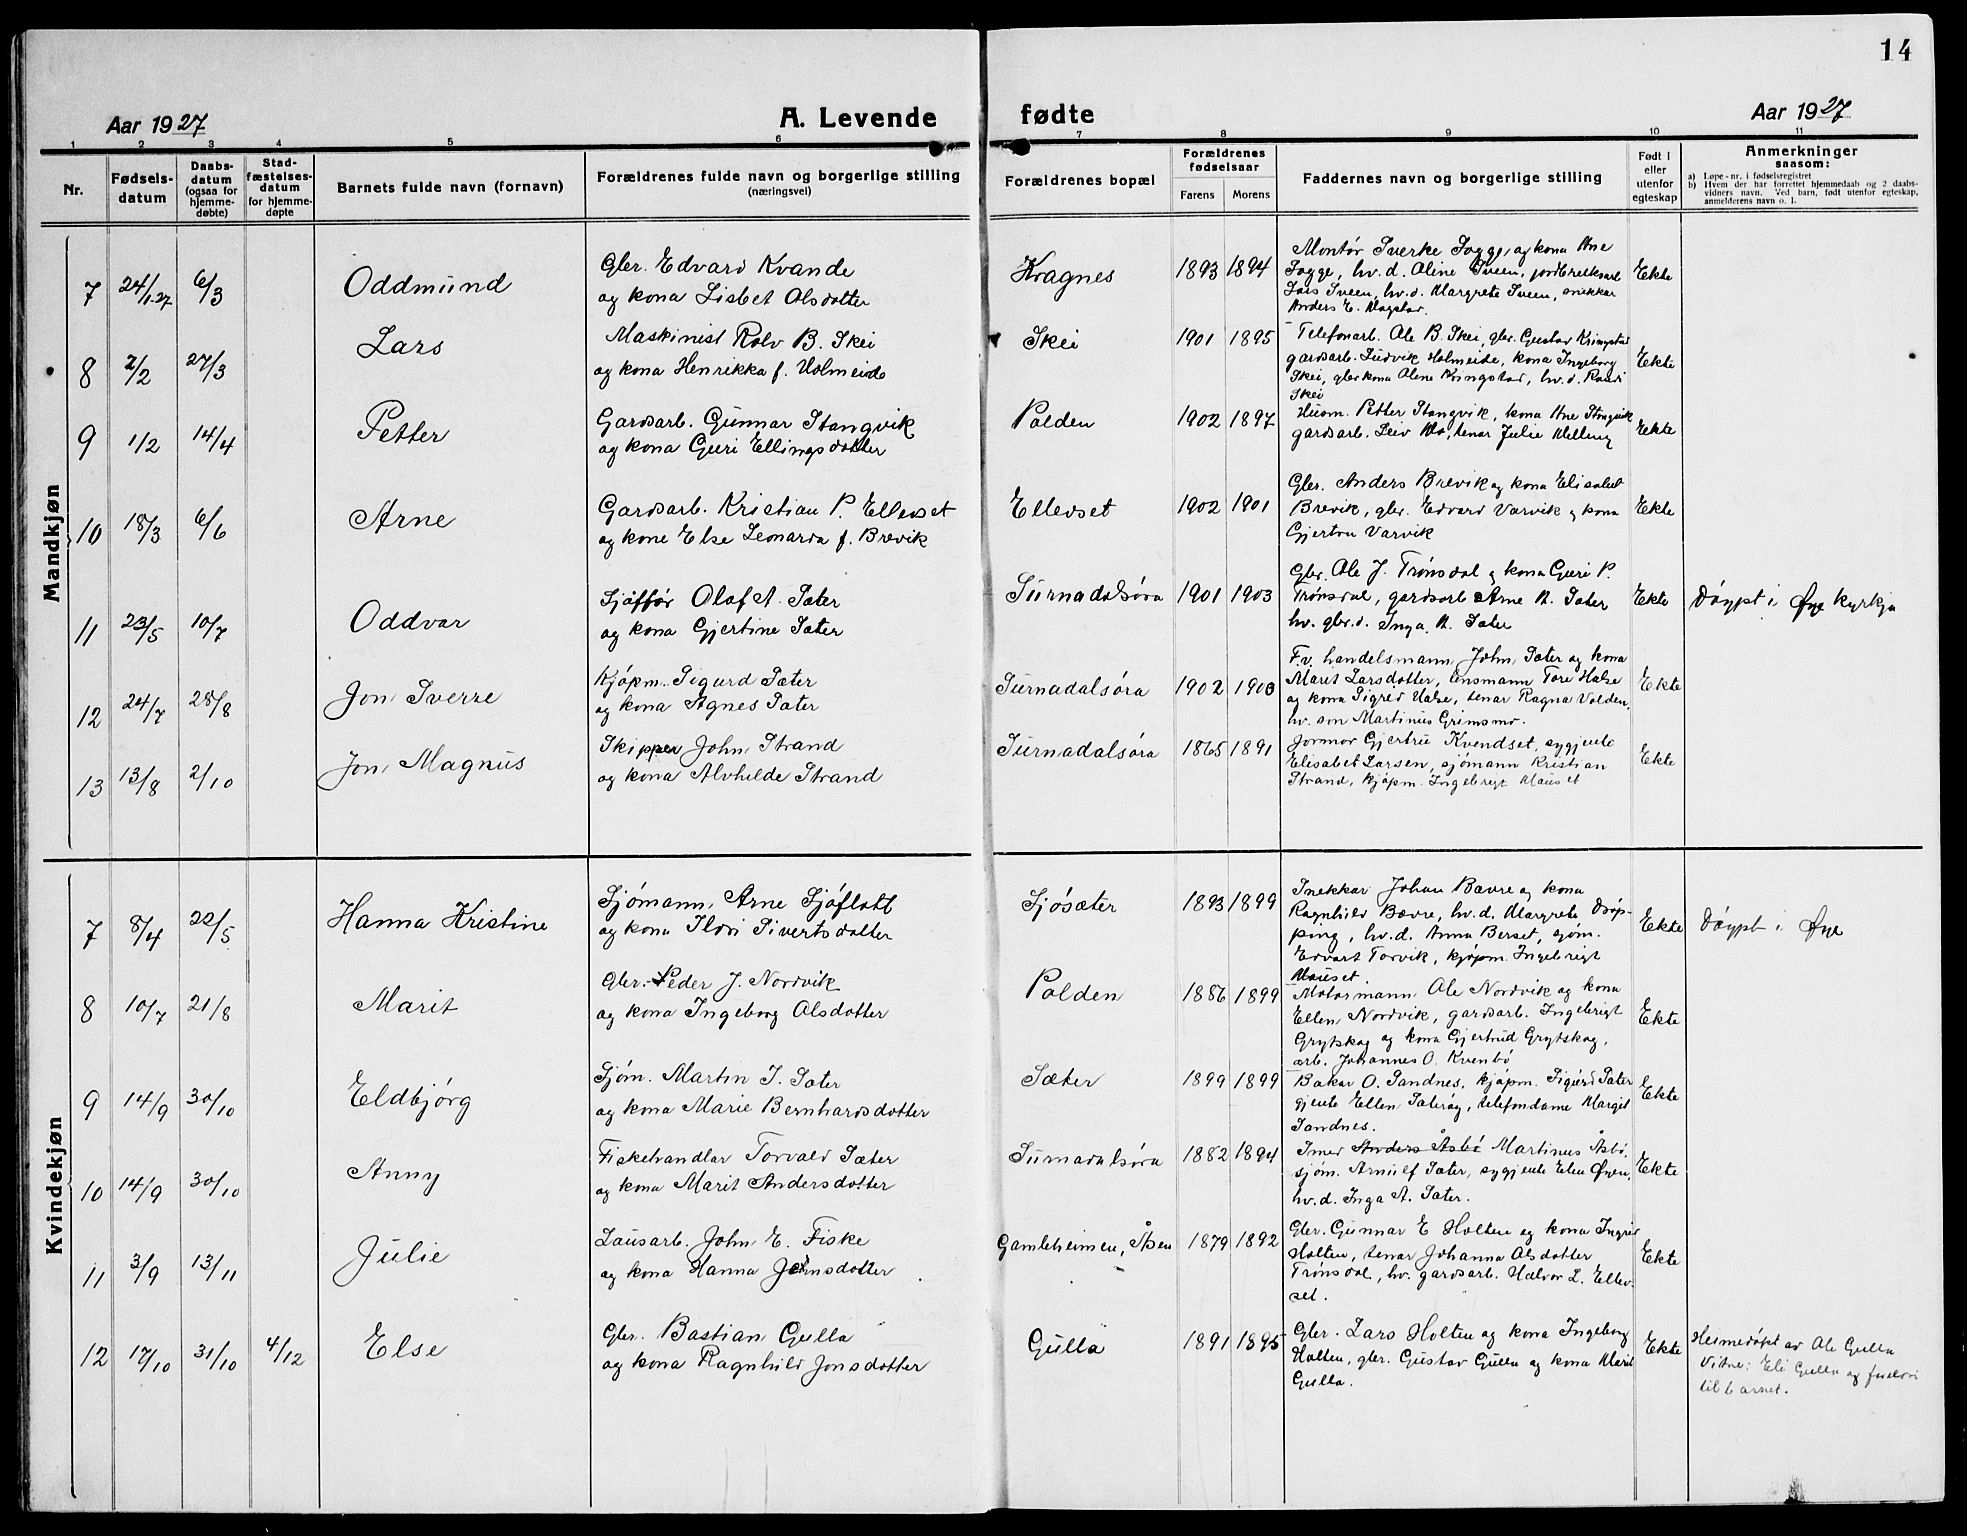 14
Aar 1927
A. Levende fødte
Aar 1927
1 2 3 4 5 6 7 8 9 10 11
Nr.
Fødselsdatum
Daabsdatum (ogsaa for hjemmedøbte)
Stadfæstelsesdatum for hjemmedøpte
Barnets fulde navn (fornavn)
Forældrenes fulde navn og borgerlige stilling
(næringsvei)
Forældrenes bopæl
Forældrenes fødselsaar
Farens Morens
Faddernes navn og borgerlige stilling
Født i eller utenfor egteskap
Anmerkninger
saasom:
a) Løpe-nr. i fødselsregistret
b) Hvem der har forrettet hjemmedaab og 2 daabsvidners navn. Ved barn, født utenfor egteskap, anmelderens navn o. l.
Mandkjøn
7 24/1.27 6/3 Oddmund
Gbr. Edvard Kvande
og kona Lisbet Olsdotter
Kragnes 1893 1894
Montør Sverke Fogge, og kona Ane
Fogge, hv.d. Oline Sveen, jordbruksarb
Lars Sveen, hv.d. Margrete Sveen, snikkar
Anders E. Magstad.
Ekte
8 2/2 27/3 Lars
Maskinist Rolv B. Skei
og kona Henrikka f. Holmeide
Skei 1901 1895
Telefonarb. Ole B. Skei, gbr. Gustav Kringstad
gardsarb. Ludvik Holmeide, kona Ingeborg
Skei, gbrkona Olene Kringstad, hv.d. Randi
Skei
Ekte
9 1/2 14/4 Petter
Gardsarb. Gunnar Stangvik
og kona Guri Ellingsdotter
Polden 1902 1897
Husm. Petter Stangvik, kona Ane Stangvik
gardsarb. Leiv Mo, tenar Julie Melling
Ekte
10 18/3 6/6 Arne
Gardsarb. Kristian P. Ellevset
og kone Else Leonarda f. Brevik
Ellevset 1902 1901
Gbr. Anders Brevik og kona Elisabet
Brevik, gbr. Edvard Varvik og kona
Gjertru Varvik
Ekte
11 23/5 10/7 Oddvar
Sjåffør Olaf A. Sæter
og kona Gjertine Sæter
Surnadalsøra 1901 1903
Gbr. Ole J. Trønsdal og kona Guri P.
Trønsdal, gardsarb Arne A. Sæter
hv. gbr.d. Inga A. Sæter
Ekte
Døypt i Øye kyrkja
12 24/7 28/8 Jon Sverre
Kjøpm. Sigurd Sæter
og kona Agnes Sæter
Surnadalsøra 1902 1903
F.v. handelsmann John Sæter og kona
Marit Larsdotter, lensmann Tore Halse
og kona Sigrid Halse, tenar Ragna Volden,
hv. son Martinus Grimsmo.
Ekte
13 13/8 2/10 Jon Magnus
Skipper John Strand
og kona Alvhilde Strand
Surnadalsøra 1865 1891
Jormor Gjertru Kvendset, sygjente
Elisabet Larsen, sjømann Kristian
Strand, kjøpm. Ingebrigt Mauset
Ekte
Kvindekjøn
7 8/4 22/5 Hanna Kristine
Sjømann Arne Sjøflott
og kona Ildri Sivertsdotter
Sjøsæter 1893 1899
Snekkar Johan Bævre og kona
Ragnhild Bævre, hv.d. Margrete Drøpping, hv.d. Anna Berset, sjøm.
Edvart Torvik, kjøpm. Ingebrigt
Mauset.
Ekte
Døypt i Øye
8 10/7 21/8 Marit
Gbr. Peder J. Nordvik
og kona Ingeborg Olsdotter
Polden 1886 1899
Motormann Ole Nordvik og kona
Ellen Nordvik, gardsarb. Ingebrigt
Grytskog og kona Gjertrud Grytskog,
arb. Johannes O. Kvenbø
Ekte
9 14/9 30/10 Eldbjørg
Sjøm. Martin J. Sæter
og kona Marie Bernhardsdotter
Sæter 1899 1899
Bakar O. Sandnes, kjøpm. Sigurd Sæter
gjente Ellen Sæterøy, telefondame Margit
Sandnes.
Ekte
10 14/9 30/10 Anny
Fiskehandlar Torvald Sæter
og kona Marit Andersdotter
Surnadalsøra 1882 1894
Smed Anders Åsbø Martinus Åsbø,
sjøm. Arnulf Sæter, sygjente Elen Øyen,
hv.d. Inga A. Sæter.
Ekte
11 3/9 13/11 Julie
Lausarb. John E. Fiske
og kona Hanna Jonsdotter
Gamleheimen, Åsen 1879 1892
Gbr. Gunnar E Holten og kona Ingrid
Holten, tenar Johanna Olsdotter
Trønsdal, hv. gardsarb. Halvor L. Ellevset.
Ekte
12 17/10 31/10 4/12 Else
Gbr. Bastian Gulla
og kona Ragnhild Jonsdotter
Gulla 1891 1895
Gbr. Lars Holten og kona Ingeborg
Holten, gbr. Gustav Gulla og kona Marit
Gulla.
Ekte
Heimedøpt av Ole Gulla
Vitne: Eli Gulla og
til barnet.